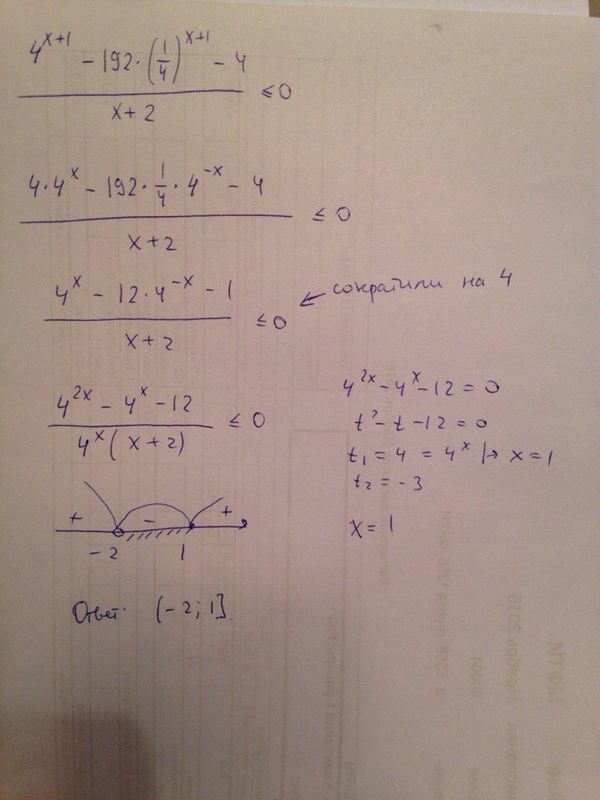 4^{x+1} - 192 · (1/4)^{x+1} - 4
x + 2
≤ 0
4 · 4^x - 192 · 1/4 · 4^{-x} - 4
x + 2
≤ 0
4^x - 12 · 4^{-x} - 1
x + 2
≤ 0
сократили на 4
4^{2x} - 4^x - 12
4^x (x + 2)
≤ 0
4^{2x} - 4^x - 12 = 0
t² - t - 12 = 0
t₁ = 4 = 4^x |→ x = 1
t₂ = -3
x = 1
+ - +
-2 1
Ответ: (-2; 1].